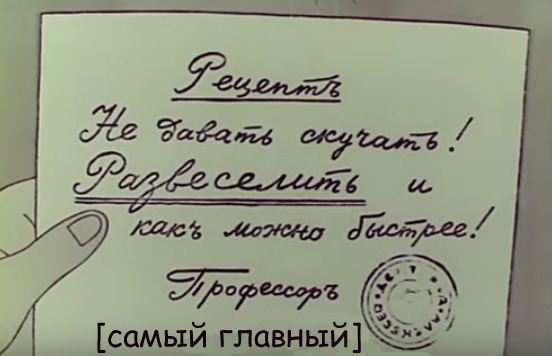 Рецептъ
Не давать скучать!
Развеселить и
какъ можно быстрее!
Профессоръ
[самый главный]